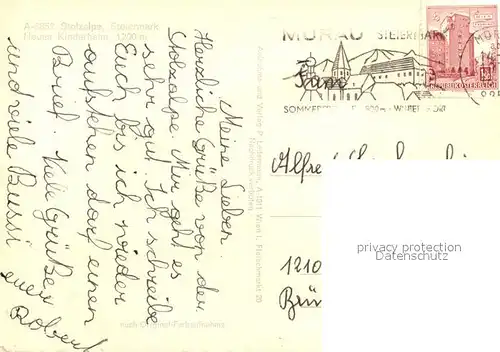 A-8852 Stolzalpe, Steiermark
Neues Kinderheim 1200 m
Meine Lieben.
Herzliche Grüße von der
Stolzalpe. Mir geht es
sehr gut. Ich schreibe
Euch bis ich wieder
aufstehen darf einen
Brief. Viele Grüße
und viele Bussi
euer
Robert
Verlag P. Ledermann, A-1011 Wien I, Fleischmarkt 20
nach Original-Farbaufnahme
MURAU STEIERMARK
REPUBLIK ÖSTERREICH
Fam
Alfred
1210
Brü
privacy protection
Datenschutz